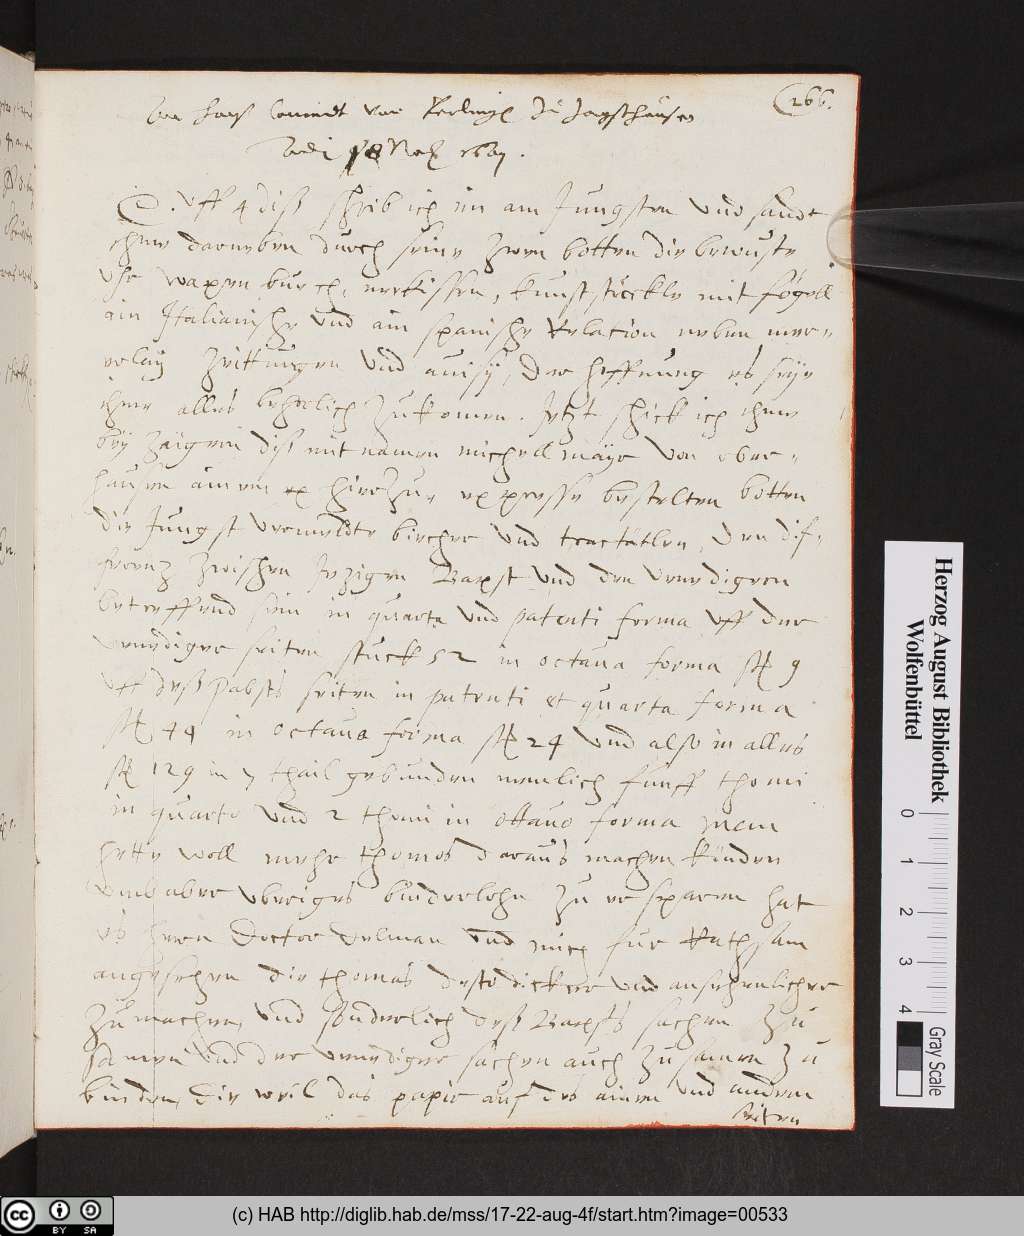 266.
von Berlinge zu Jagsthausen
Adi 18 1607.
E. Uff 4 diss schrib ich im am Jungsten und sandt
ihme darneben durch seine zwen botten die bewuste
wapen buech, kunst stückle mit fögell
ain Italianische und ain spanische Relation neben
zeittungen und auisy, der hoffnung es seye
ihme alles zukomen. Jetzt schick ich ihme
bey zaigern diss mit namen michell mayr von ober-
hausen ainem hierzu, expresse bestelten botten
die Jungst vermeldte biecher und tractätlen, den dif-
ferenz zwischen Jezigen Bapst und den venedigern
betreffend sein in quarta und patenti forma uff der
venediger seiten stuck 52 in octaua forma st 9
uff dess Pabsts seiten in patenti et quarta forma
st 44 in octaua forma st 24 und also in alles
st 129 in 7 thail gebunden nemlich funff thomi
in quarto und 2 thomi in ottauo forma man
hette woll mehr thomos daraus machen künden
umb aber ubriges binderlohn zu ersparen hat
es hern Doctor und mich für Rathsam
angesehen die thomos desto dicker und ansehenlicher
zu machen, und sonderlich dess Bapsts sachen zu
samen und der venediger sachen auch zu samen zu
binden, die weil das papir auf des ainen und andern
seiten
Herzog August Bibliothek
Wolfenbüttel
0 1 2 3 4
Gray Scale
cc BY SA
(c) HAB http://diglib.hab.de/mss/17-22-aug-4f/start.htm?image=00533